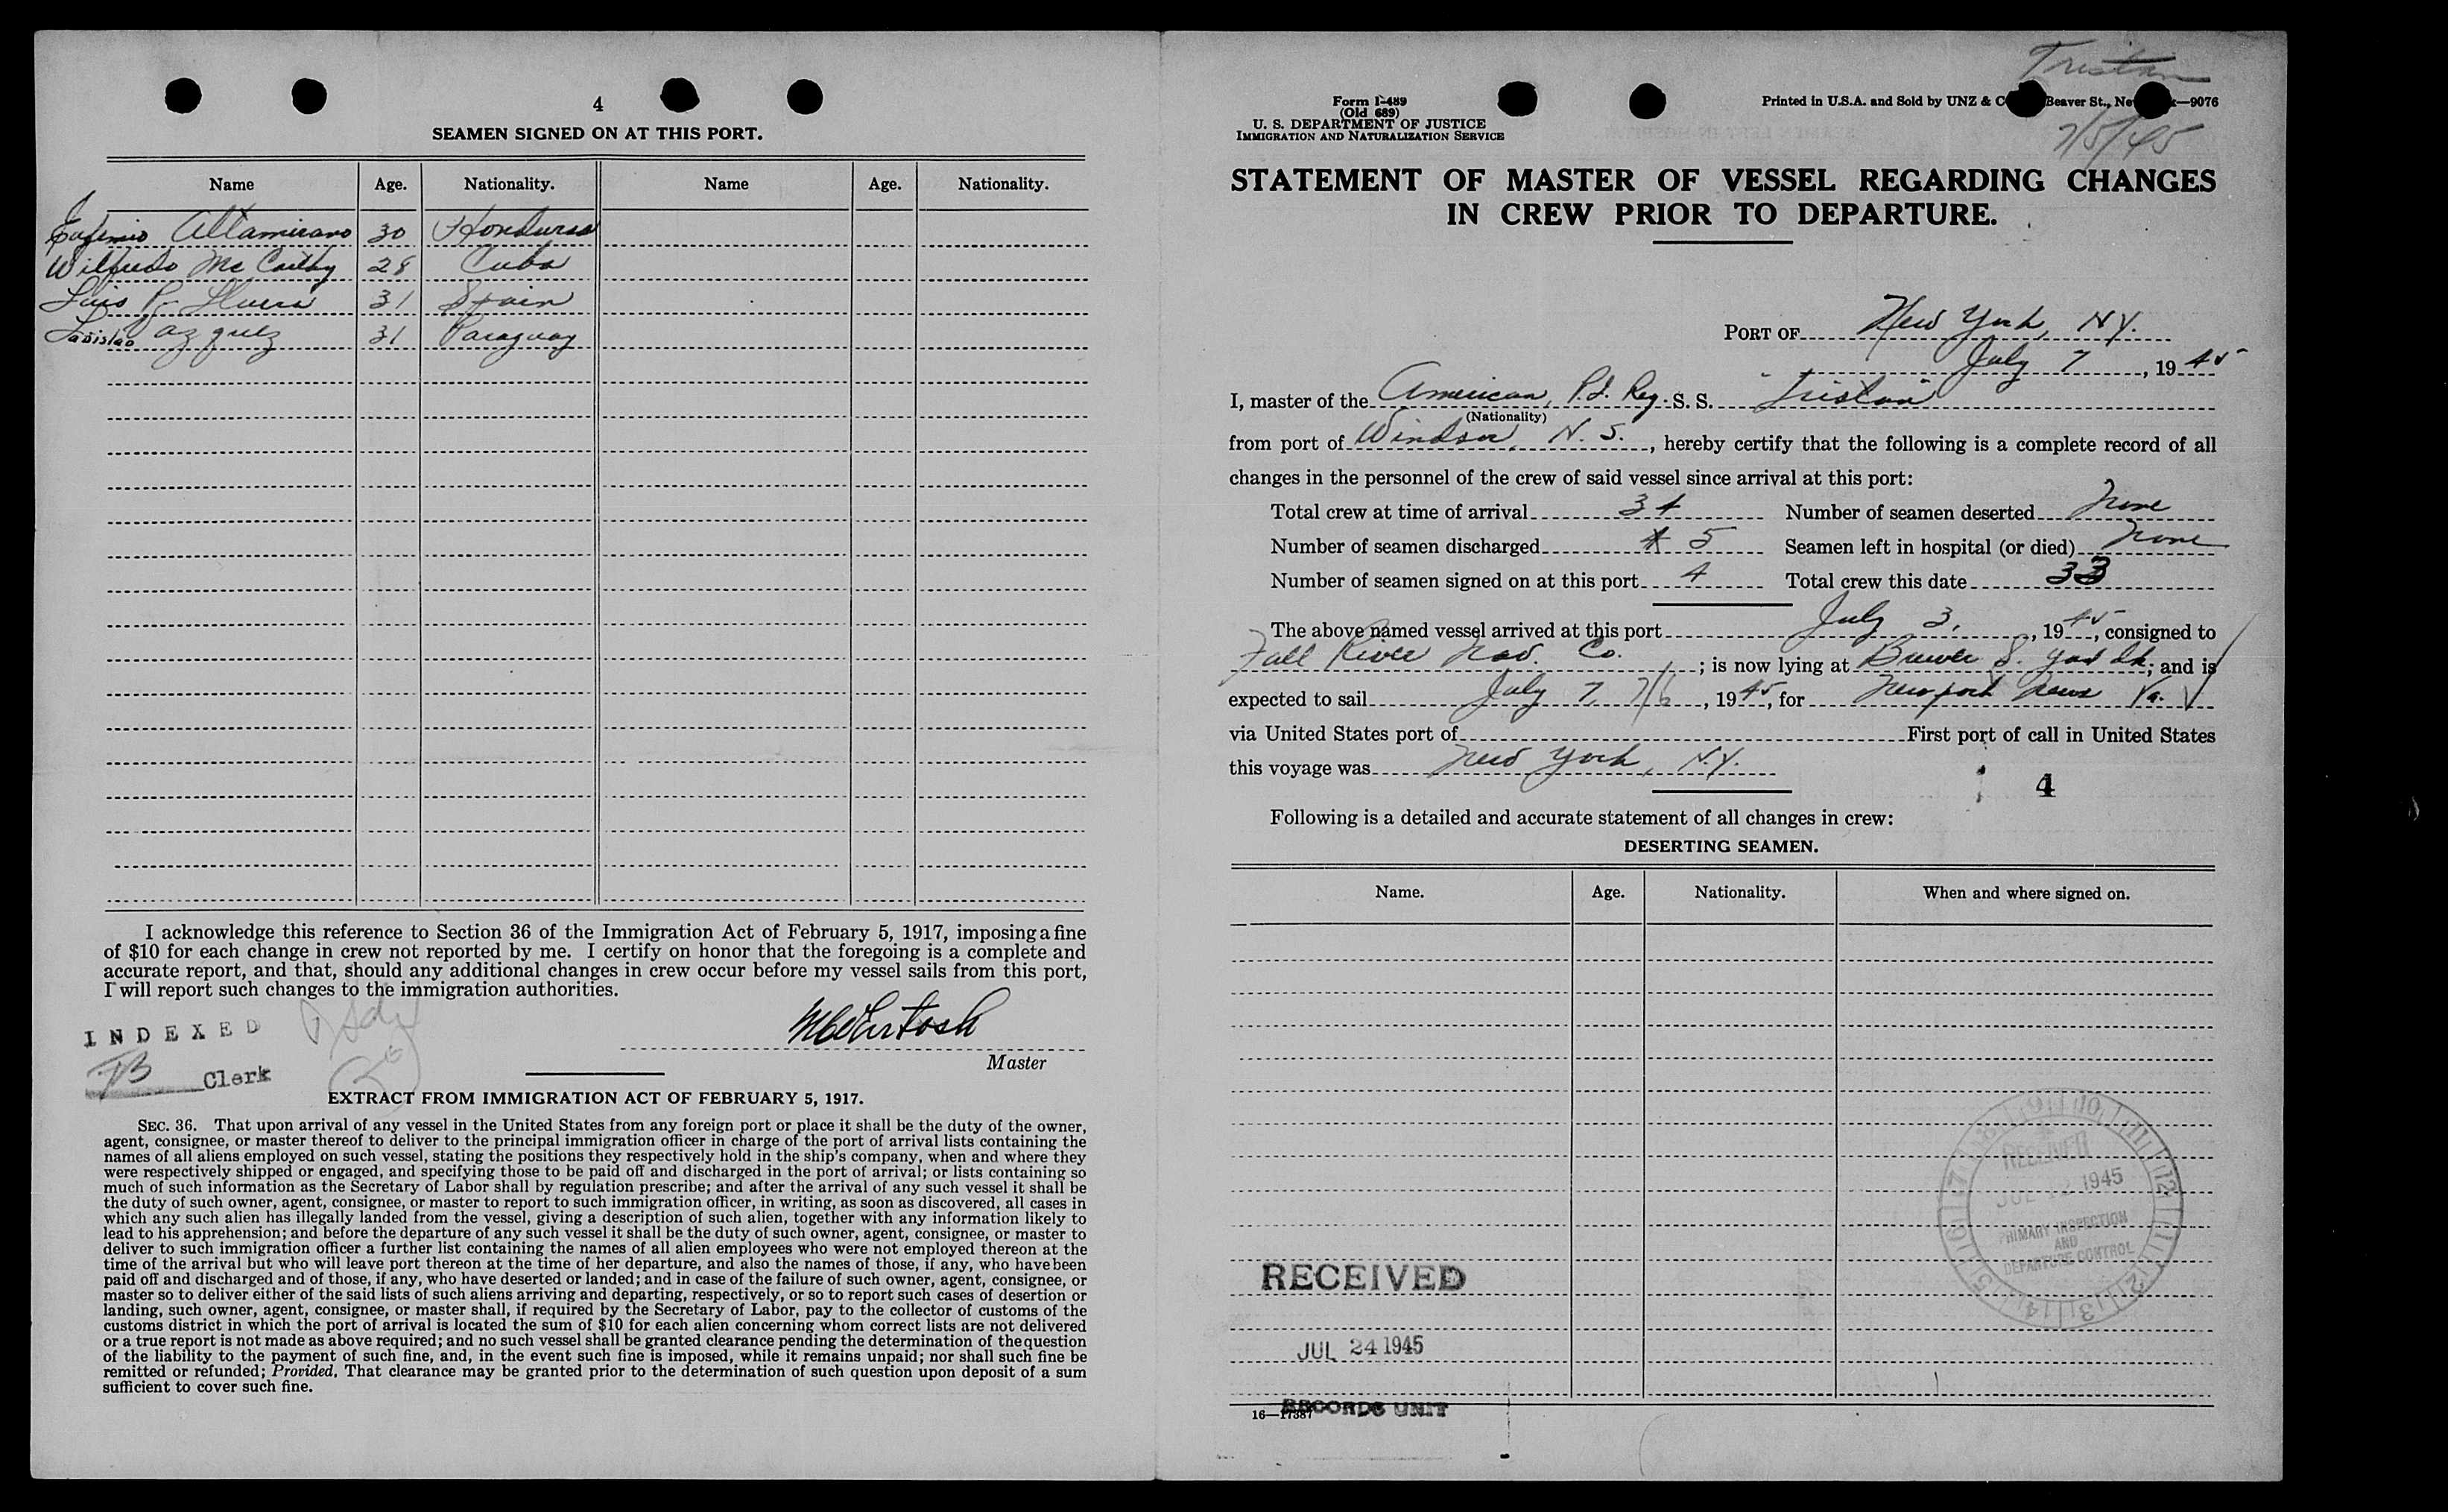 4
SEAMEN SIGNED ON AT THIS PORT.
Name Age. Nationality. Name Age. Nationality.
Altamirano 30 Honduras
Wilfredo Mc Carthy 28 Cuba
Luis P. 31 Spain
Ladislao Vazquez 31 Paraguay
I acknowledge this reference to Section 36 of the Immigration Act of February 5, 1917, imposing a fine
of $10 for each change in crew not reported by me. I certify on honor that the foregoing is a complete and
accurate report, and that, should any additional changes in crew occur before my vessel sails from this port,
I will report such changes to the immigration authorities.
INDEXED
McIntosh
Master
TB Clerk
EXTRACT FROM IMMIGRATION ACT OF FEBRUARY 5, 1917.
SEC. 36. That upon arrival of any vessel in the United States from any foreign port or place it shall be the duty of the owner,
agent, consignee, or master thereof to deliver to the principal immigration officer in charge of the port of arrival lists containing the
names of all aliens employed on such vessel, stating the positions they respectively hold in the ship's company, when and where they
were respectively shipped or engaged, and specifying those to be paid off and discharged in the port of arrival; or lists containing so
much of such information as the Secretary of Labor shall by regulation prescribe; and after the arrival of any such vessel it shall be
the duty of such owner, agent, consignee, or master to report to such immigration officer, in writing, as soon as discovered, all cases in
which any such alien has illegally landed from the vessel, giving a description of such alien, together with any information likely to
lead to his apprehension; and before the departure of any such vessel it shall be the duty of such owner, agent, consignee, or master to
deliver to such immigration officer a further list containing the names of all alien employees who were not employed thereon at the
time of the arrival but who will leave port thereon at the time of her departure, and also the names of those, if any, who have been
paid off and discharged and of those, if any, who have deserted or landed; and in case of the failure of such owner, agent, consignee, or
master so to deliver either of the said lists of such aliens arriving and departing, respectively, or so to report such cases of desertion or
landing, such owner, agent, consignee, or master shall, if required by the Secretary of Labor, pay to the collector of customs of the
customs district in which the port of arrival is located the sum of $10 for each alien concerning whom correct lists are not delivered
or a true report is not made as above required; and no such vessel shall be granted clearance pending the determination of the question
of the liability to the payment of such fine, and, in the event such fine is imposed, while it remains unpaid; nor shall such fine be
remitted or refunded; Provided, That clearance may be granted prior to the determination of such question upon deposit of a sum
sufficient to cover such fine.
Tristan
Form I-489
(Old 689)
U. S. DEPARTMENT OF JUSTICE
IMMIGRATION AND NATURALIZATION SERVICE
Printed in U.S.A. and Sold by UNZ & Beaver St., —9076
7/5/45
STATEMENT OF MASTER OF VESSEL REGARDING CHANGES
IN CREW PRIOR TO DEPARTURE.
PORT OF New York, N.Y.
July 7, 1945
I, master of the American, Reg. S. S. "Tristan"
(Nationality)
from port of Windsor, N. S., hereby certify that the following is a complete record of all
changes in the personnel of the crew of said vessel since arrival at this port:
Total crew at time of arrival 34 Number of seamen deserted None
Number of seamen discharged 5 Seamen left in hospital (or died) None
Number of seamen signed on at this port 4 Total crew this date 33
The above named vessel arrived at this port July 3, 1945, consigned to
Fall River Nav. Co.; is now lying at; and is
expected to sail July 7, 7/6, 1945, for Newport News Va.
via United States port of First port of call in United States
this voyage was New York, N.Y.
4
Following is a detailed and accurate statement of all changes in crew:
DESERTING SEAMEN.
Name. Age. Nationality. When and where signed on.
9 10 11 12 1 2 3 4 5 6 7 8
RECEIVED
JUL 12 1945
PRIMARY INSPECTION
AND
DEPARTURE CONTROL
RECEIVED
JUL 24 1945
RECORDS UNIT
16—17387